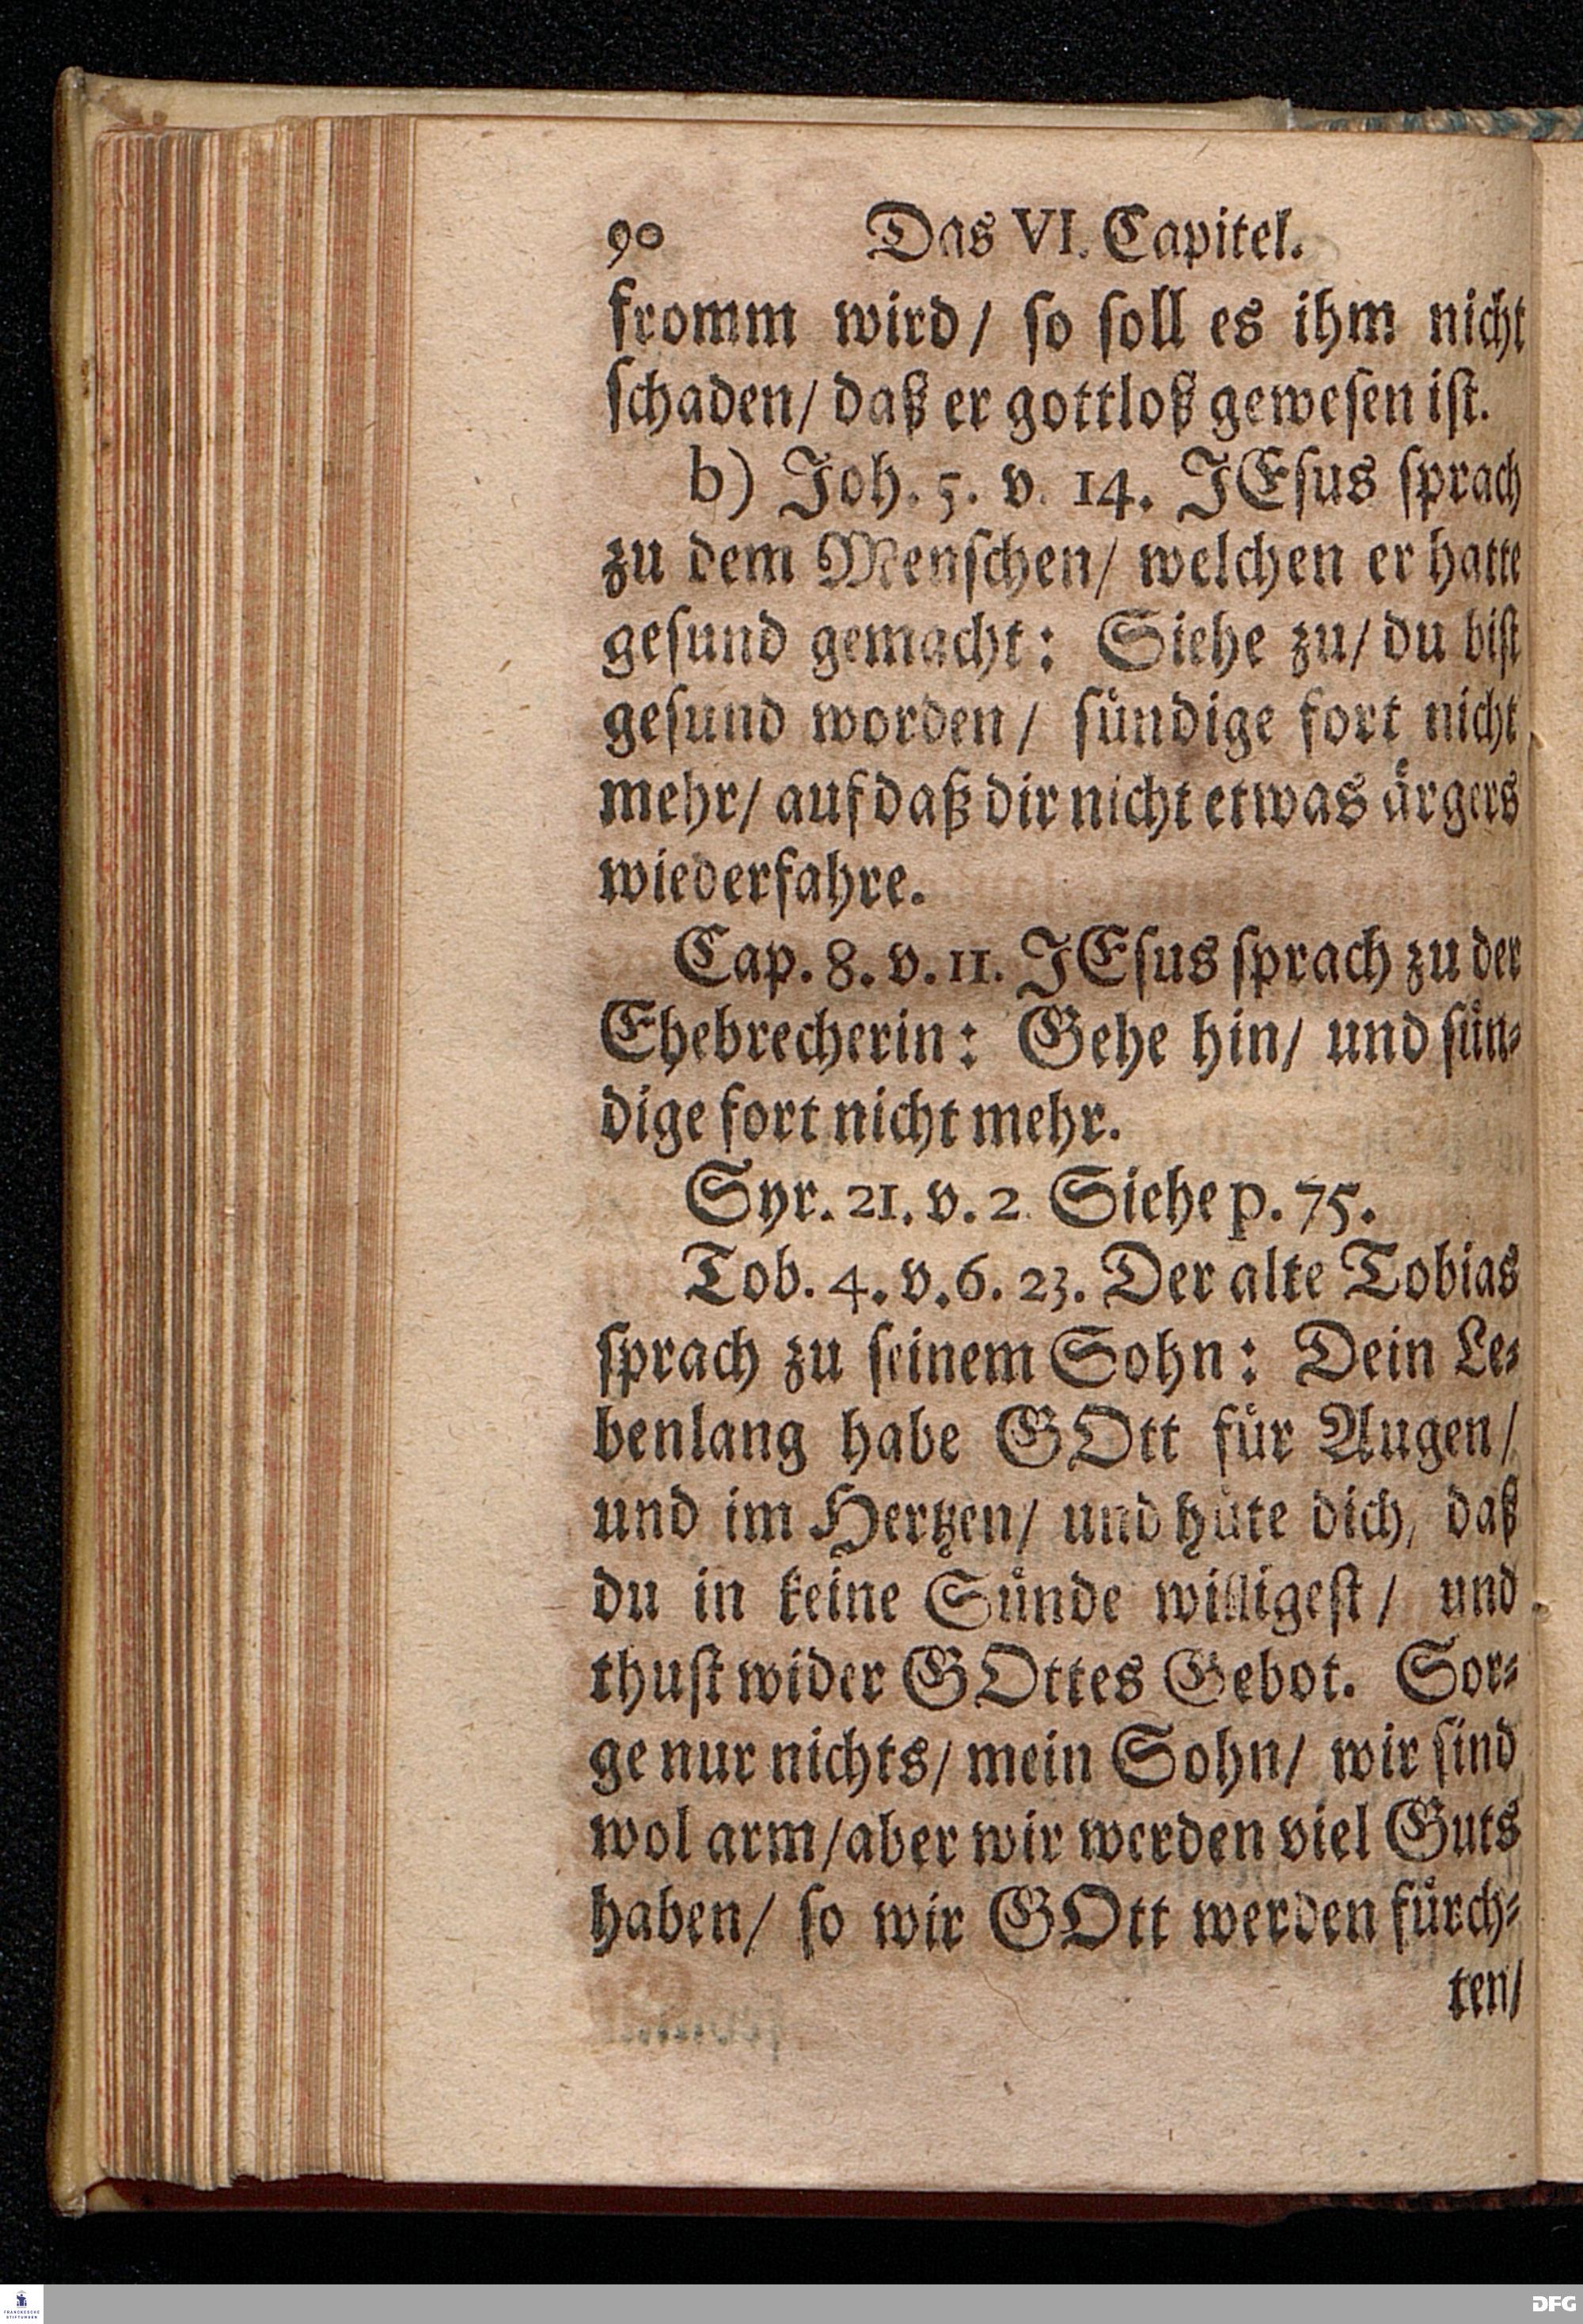 90 Das VI. Capitel.
fromm wird/ so soll es ihm nicht
schaden/ daß er gottloß gewesen ist.
b) Joh. 5. v. 14. JEsus sprach
zu dem Menschen/ welchen er hatte
gesund gemacht: Siehe zu/ du bist
gesund worden/ sündige fort nicht
mehr/ auf daß dir nicht etwas ärgers
wiederfahre.
Cap. 8. v. 11. JEsus sprach zu der
Ehebrecherin: Gehe hin/ und sün-
dige fort nicht mehr.
Syr. 21. v. 2. Siehe p. 75.
Tob. 4. v. 6. 23. Der alte Tobias
sprach zu seinem Sohn: Dein Le-
benlang habe GOtt für Augen/
und im Hertzen/ und hüte dich, daß
du in keine Sünde willigest/ und
thust wider GOttes Gebot. Sor-
ge nur nichts/ mein Sohn/ wir sind
wol arm/ aber wir werden viel Guts
haben/ so wir GOtt werden fürch-
ten/
FRANCKESCHE
STIFTUNGEN
DFG